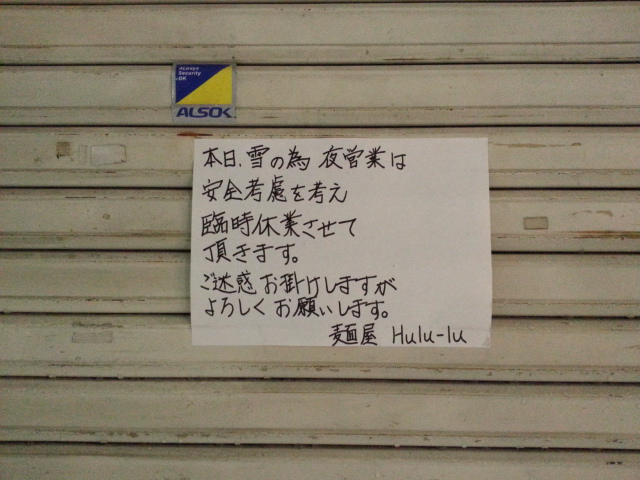 ALways
Security
OK
ALSOK
本日、雪の為 夜営業は
安全考慮を考え
臨時休業させて
頂きます。
ご迷惑お掛けしますが
よろしくお願いします。
麺屋 Hulu-lu